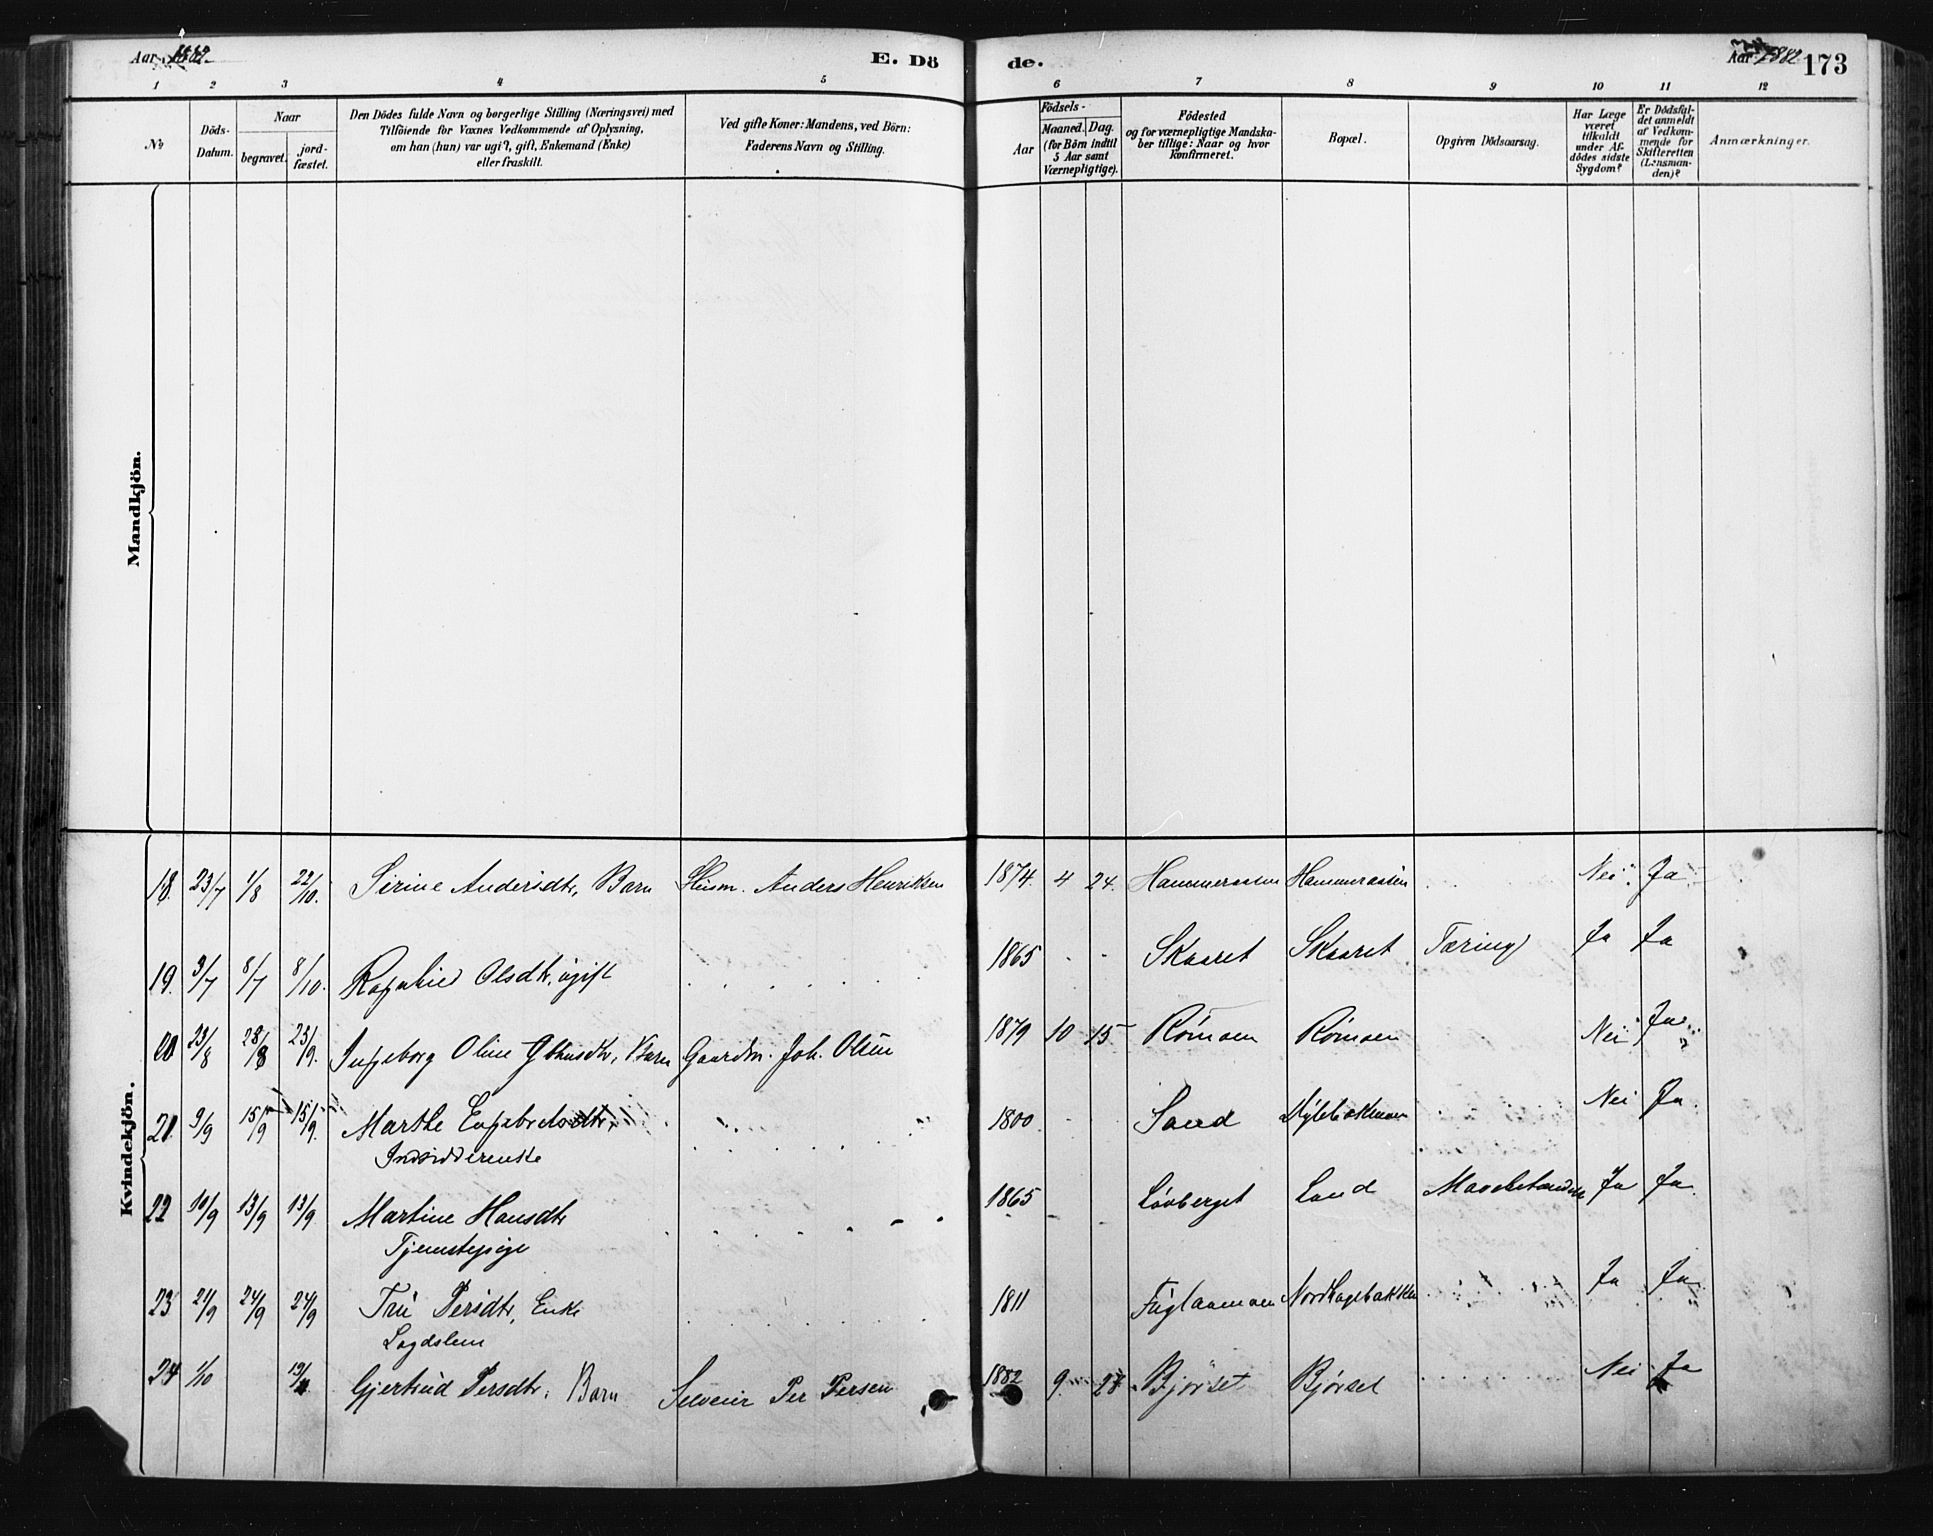 Aar 1882. E. Dö de. Aar 1882 173
1 2 3 4 5 6 7 8 9 10 11 12
No
Döds-Datum.
Naar
begravet.
jord-fæstet.
Den Dödes fulde Navn og borgerlige Stilling (Næringsvei) med
Tilföiende for Voxnes Vedkommende af Oplysning,
om han (hun) var ugift, gift, Enkemand (Enke)
eller fraskilt.
Ved gifte Koner: Mandens, ved Börn:
Faderens Navn og Stilling.
Födsels-
Aar
Maaned.
Dag.
(for Börn indtil
5 Aar samt
Værnepligtige).
Födested
og for værnepligtige Mandska-
ber tillige: Naar og hvor
konfirmeret.
Bopæl.
Opgiven Dödsaarsag.
Har Læge
været
tilkaldt
under Af-
dödes sidste
Sygdom?
Er Dödsfal-
det anmeldt
af Vedkom-
mende for
Skifteretten
(Lensman-
den)?
Anmærkninger.
Mandkjön.
Kvindekjön.
18. 23/7 1/8 22/10. Sirine Andersdtr, Barn Husm. Anders Henriksen 1874. 4 24. Hammeraasen Hammeraasen Nei. Ja.
19. 3/7 8/7 8/10. Olsdtr, ugift 1865 Skaaret Skaaret Tæring Ja Ja
20 23/8 28/8 23/9. Ingeborg Oline Johnsdtr, Barn Gaardm. Joh. Olsen 1879 10 15 Rømoen Rømoen Nei Ja
21. 9/9 15/9 15/9. Marthe Engebretsdtr, 1800. Sand Nei Ja.
Inderstenke
22 10/9 13/9 13/9 Martine Hansdtr 1865 Løvberget Sand Mavebetændelse Ja Ja.
Tjenestepige
23 21/9 24/9 24/9 Persdtr, Enke 1811 Fuglaamoen Nordhagebakken Ja Ja.
Lægdslem
24 1/10 Gjertrud Persdtr. Barn Selveier Per Persen 1882 9 28 Bjørset Bjørset Nei Ja